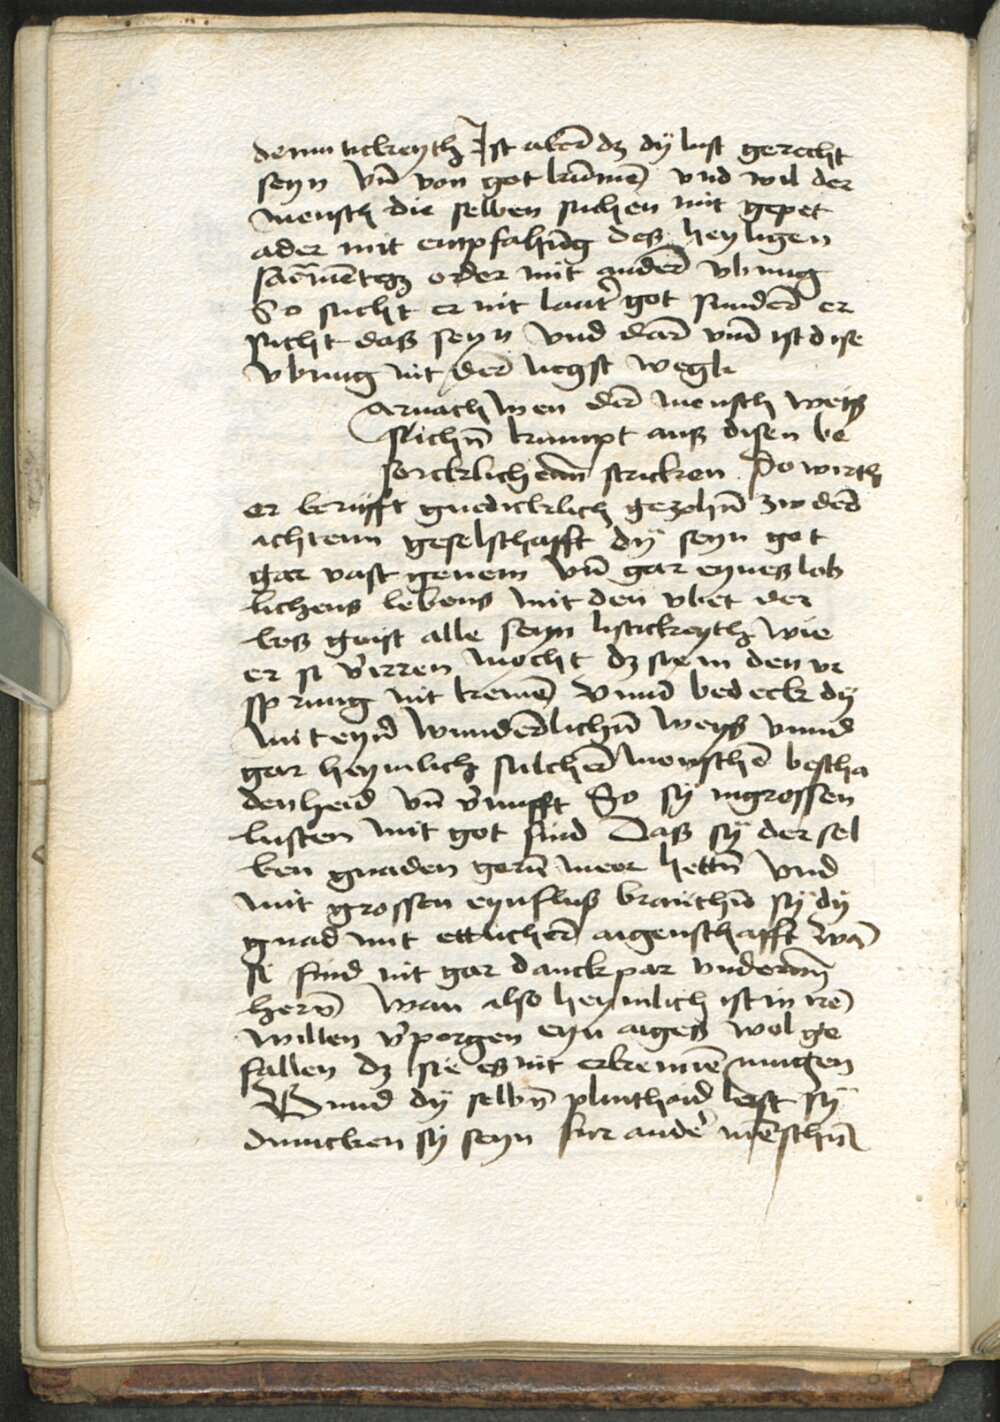 demutickeyth Ist aber dz dÿ lust gerecht
seyn vn̄ von got kūmen̄ vnd wil der
mensch die selben suchen mit gepet
ader mit empfahūg des heyligen
sacr̄mētez oder mit anderē vbung
So sucht er nit lautʼ got sunderē er
sucht daß seyn vnd darē vm̄ ist dise
vbung nit der negst wegk
arnach wen der mensch weiß
slichn̄ kumpt auß disen be
sorcklichenn stricken Do wirth
er berufft gnedicklich gezohn̄ zw der
achtenn geselschafft dÿ seyn got
gar vast genem vn̄ gar eynes lob
lichens lebens mit den vbet der
boß geist alle seyn listickeyth wie
er si vʼirren mocht dz sie in den vr
sprung nit kemen̄ vnnd bedeck dÿ
mit eynʼ wunderlichn̄ weyß vnnd
gar heymlich sulcher menschē bescha
denheid vn̄ vʼnufft So sÿ in grossen
lusten mit got sind Daß sÿ der sel
ben gnaden gern̄ meer hettn̄ vnd
mit grossen eynfluß brauchn̄ sÿ dÿ
gnad mit ettlicher aigenschafft wan̄
si sind nit gar danckpar vnderm̄
hern̄ wan also heymlich ist in irē
willen vʼporgen eyn aiges wol ge
fallen dz sie es nit erkennē mugen
Vnnd dÿ selbn̄ plinthaid lest sÿ
duncken sÿ seyn fur anderʼ mēschn̄